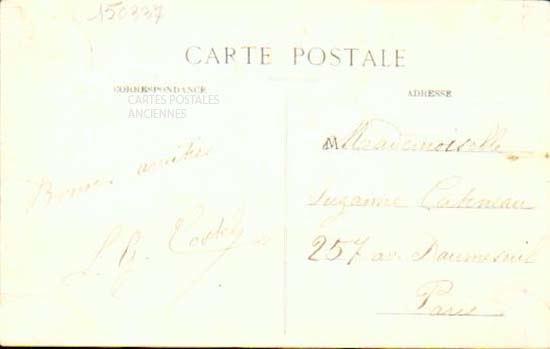 150337
CARTE POSTALE
CORRESPONDANCE
CARTES POSTALES
ANCIENNES
Bonnes amitiés
L. G.
ADRESSE
Mademoiselle
Suzanne
257 av. Daumesnil
Paris